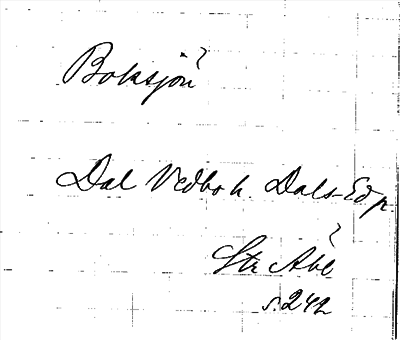 Boksjön
Dal Vedbo h. Dals-Ed p.
Str Åbl
s. 242